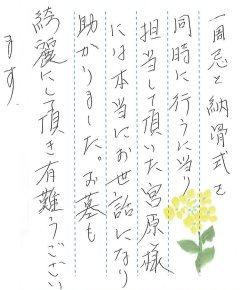 一周忌と納骨式を
同時に行うに当り
担当して頂いた宮原様
には本当にお世話になり
助かりました。お墓も
綺麗にして頂き有難うござい
ます。